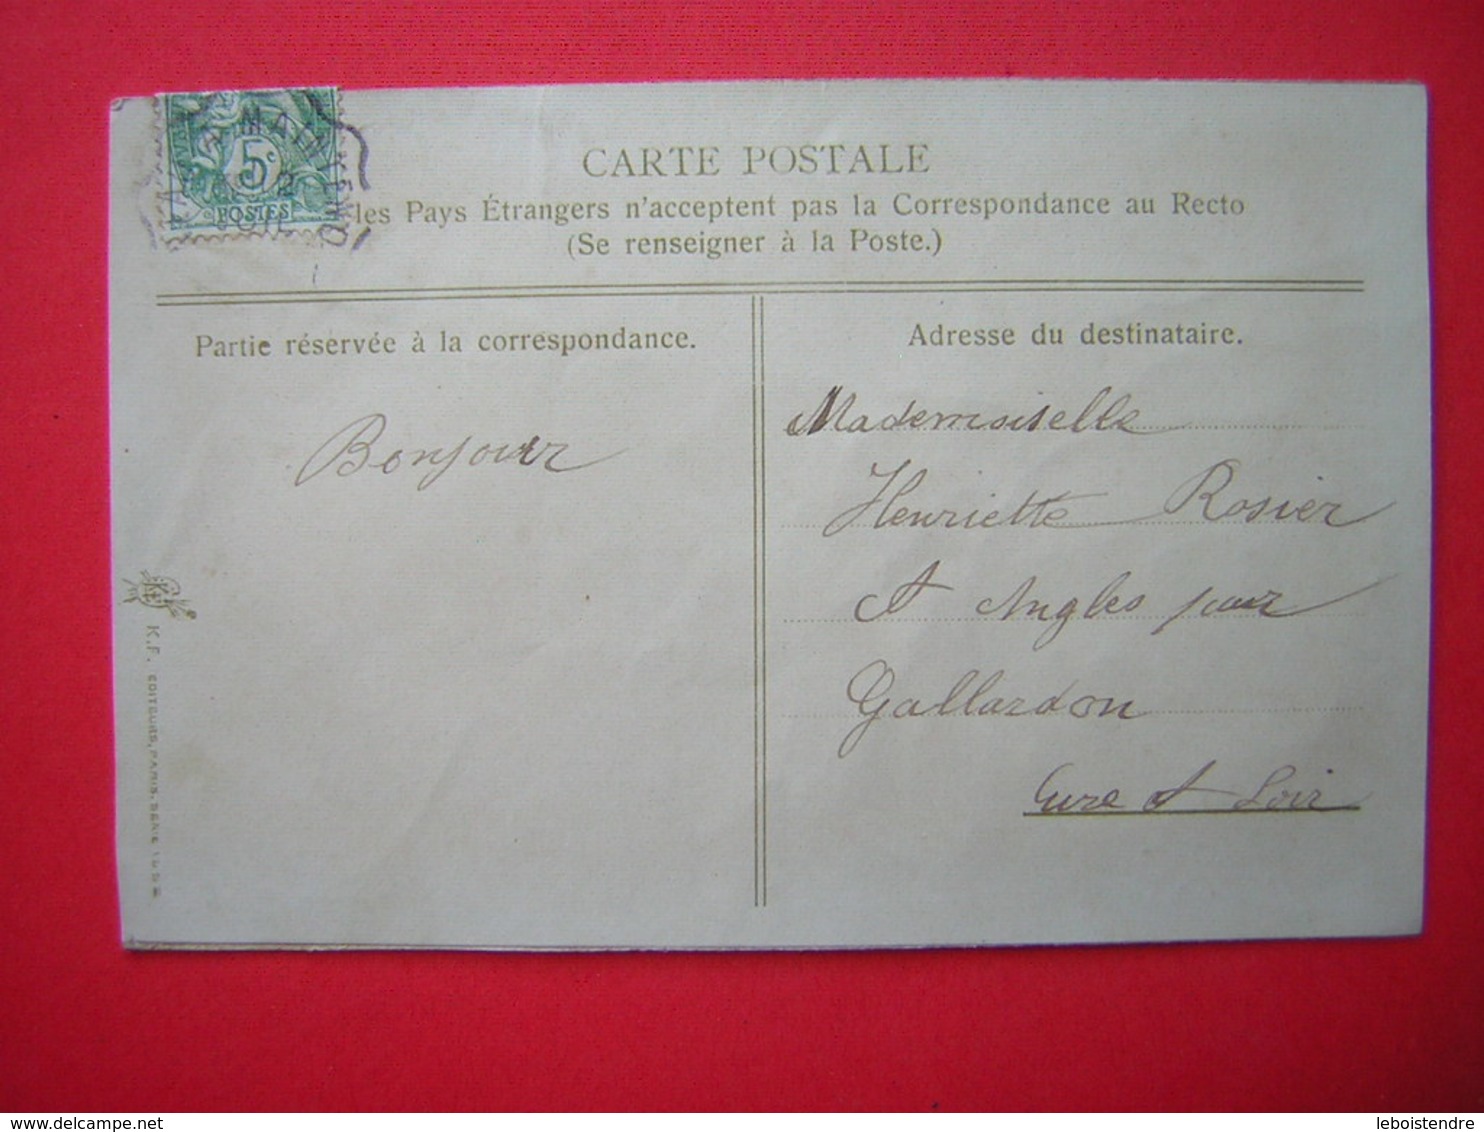 CARTE POSTALE
les Pays Étrangers n'acceptent pas la Correspondance au Recto
(Se renseigner à la Poste.)
5c
POSTES
Partie réservée à la correspondance.
Bonjour
Adresse du destinataire.
Mademoiselle
Henriette Rosier
Angles pour
Gallardon
Eure et Loir
K.F. EDITEURS, PARIS. SÉRIE
delcampe.net
leboistendre